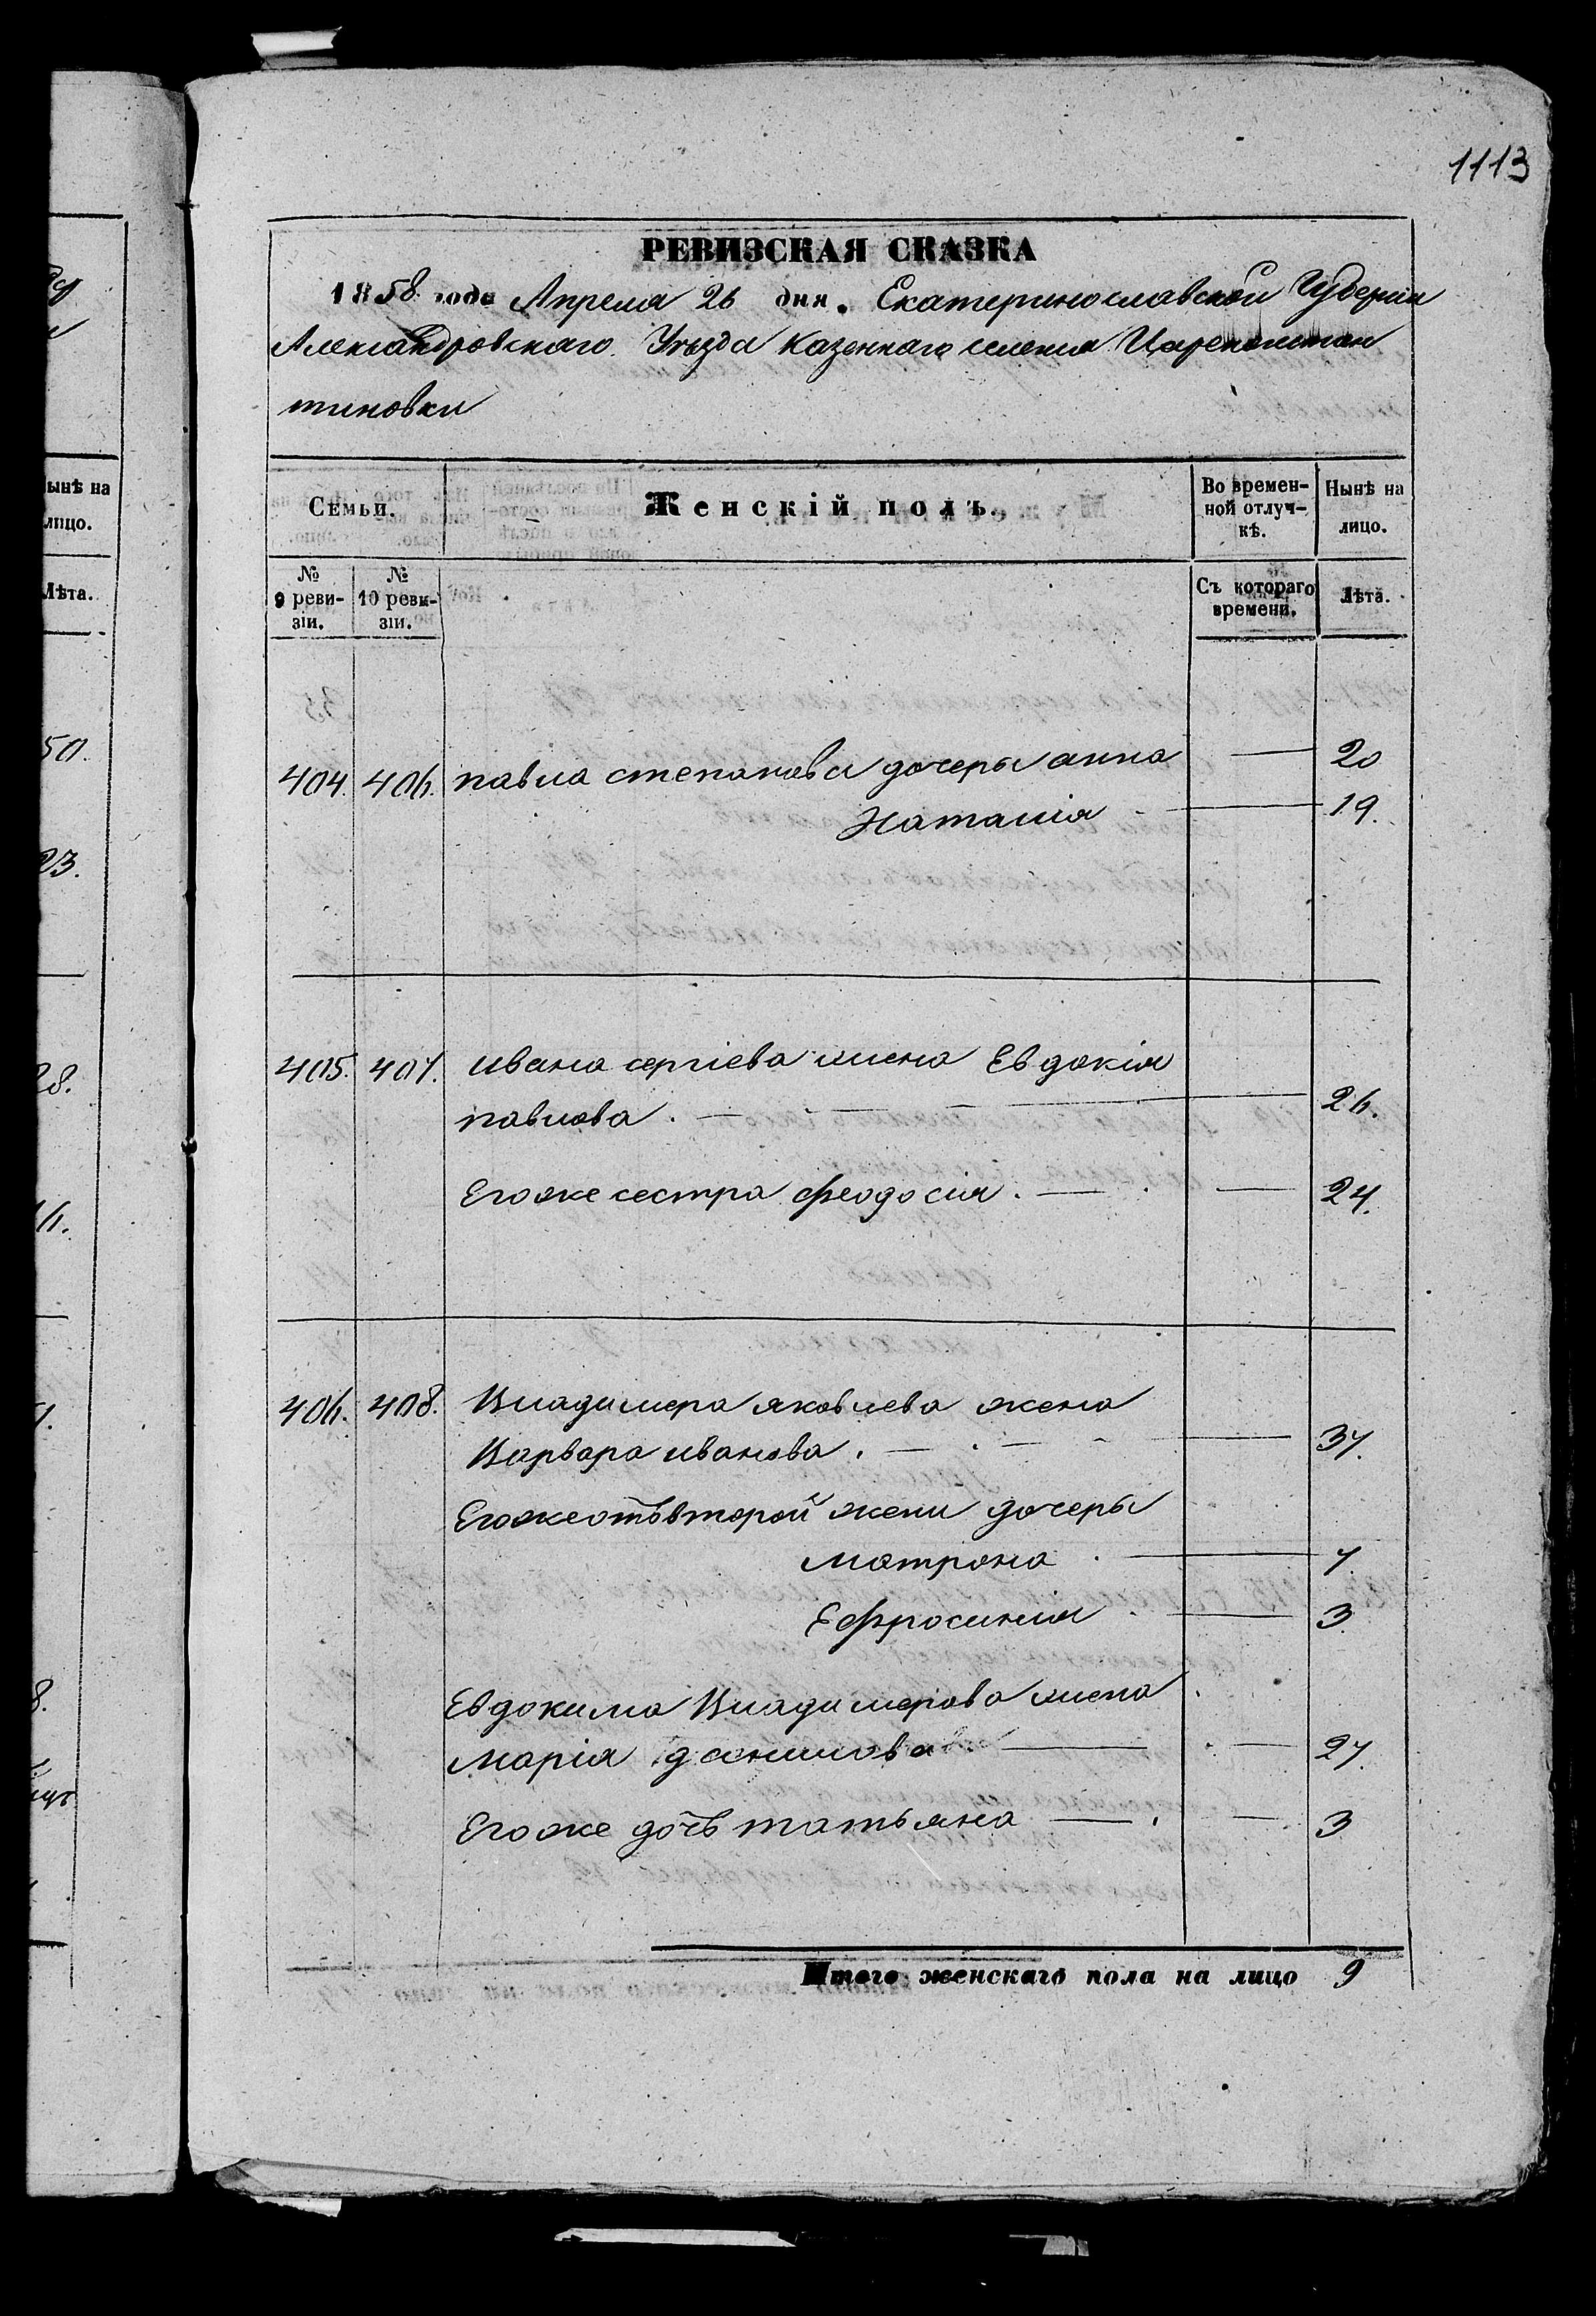 1113
РЕВИЗСКАЯ СКАЗКА
1858 года Апреля 26 дня. Екатеринославской Губернии
Александровскаго Уѣзда Казеннаго селения Цареконстан
тиновки
ынѣ на
лицо.
Лѣта.
50.
23.
28.
Семьи.
Женскій полъ.
Во времен-
ной отлуч-
кѣ.
Нынѣ на
лицо.
№
9 реви-
зіи.
№
10 реви-
зіи.
Съ котораго
времени.
Лѣта.
404. 406. павла степанова дочеры анна — 20
Наталія — 19.
405. 407. ивана сергіева жена Евдокия
павлова. — 26.
Егоже сестра феодосия. — 24.
406. 408. Владимера яковлева жена
Варвара иванова. — 37.
Егоже отъ второй жени дочеры
матрона — 7.
Ефросиния — 3
Евдокима Владимерова жена
марія данилова — 27.
Егоже дочь татьяна — 3
Итого женскаго пола на лицо 9